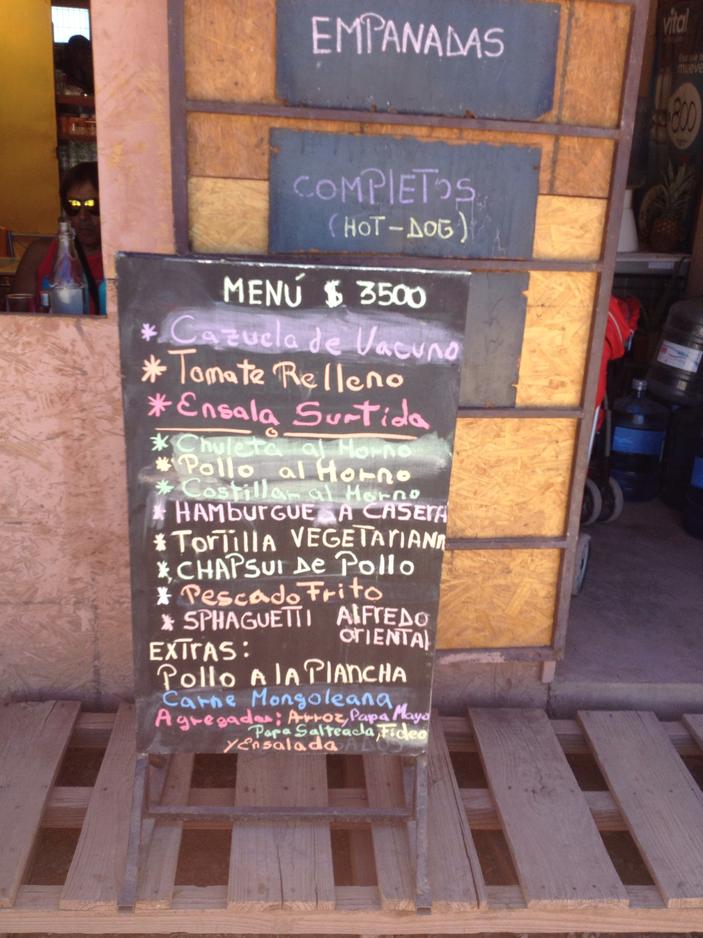 EMPANADAS
COMPLETOS
(HOT-DOG)
vital
800
MENÚ $ 3500
* Cazuela de Vacuno
* Tomate Relleno
* Ensala Surtida
o
* Chuleta al Horno
* Pollo al Horno
* Costillar al Horno
* HAMBURGUESA CASERA
* TORTILLA VEGETARIANA
* CHAPSUI DE POLLO
* Pescado Frito
* SPHAGUETTI ALFREDO
ORIENTAL
EXTRAS:
Pollo A la PLANCHA
Carne Mongoleana
Agregados: Arroz, Papa Mayo
Papa Salteada, Fideo
y Ensalada